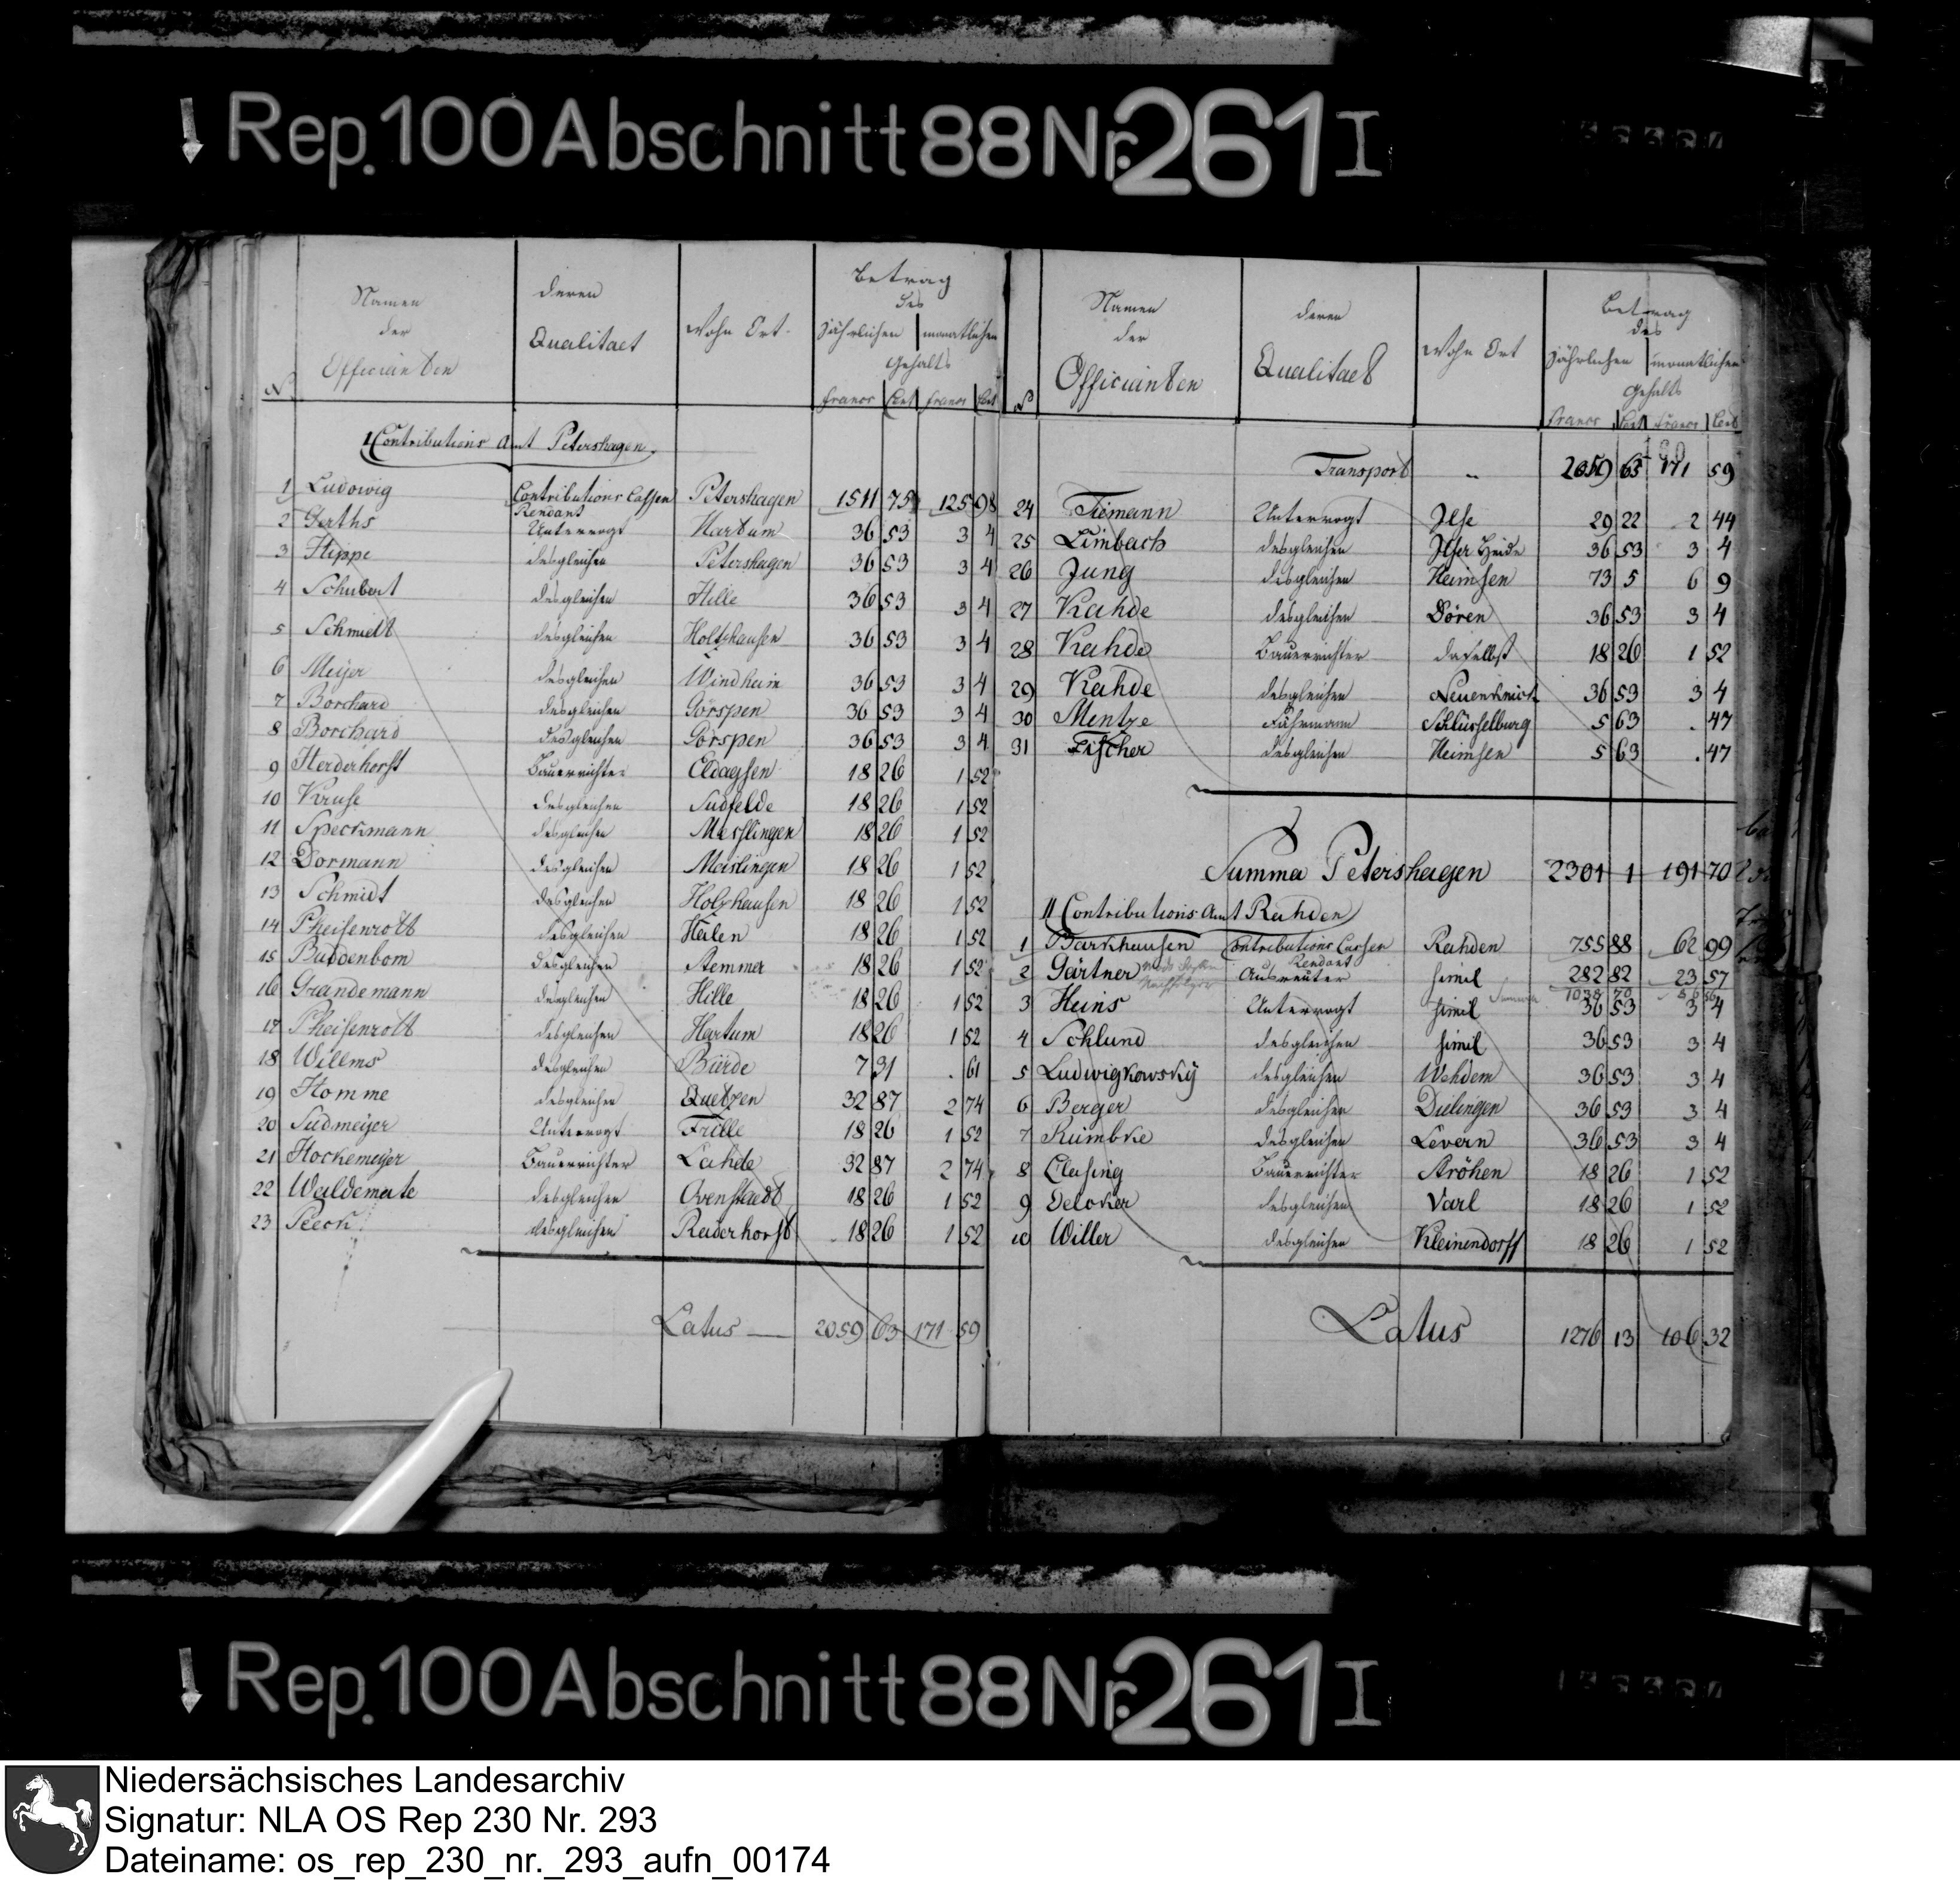 Rep. 100 Abschnitt 88 Nr. 261 I
Namen der Officianten
deren Qualitaet
Wohn Ort
Betrag des
jährlichen monatlichen
Gehalts
N francs Cent francs Cent
I Contributions Amt Petershagen
1 Ludowig Contributions Cassen Rendant Petershagen 1511 75 125 98
2 Gerths Untervogt Hartum 36 53 3 4
3 Hippe desgleichen Petershagen 36 53 3 4
4 Schubert desgleichen Hille 36 53 3 4
5 Schmidt desgleichen Holtzhausen 36 53 3 4
6 Meyer desgleichen Windheim 36 53 3 4
7 Borchard desgleichen Görspen 36 53 3 4
8 Borchard desgleichen Görspen 36 53 3 4
9 Herderhorst Bauerrichter Eldagsen 18 26 1 52
10 Kruse desgleichen Sudfelde 18 26 1 52
11 Speckmann desgleichen Messlingen 18 26 1 52
12 Dormann desgleichen Meislingen 18 26 1 52
13 Schmidt desgleichen Holzhausen 18 26 1 52
14 Pheisenrott desgleichen Halen 18 26 1 52
15 Buddenbom desgleichen Stemmer 18 26 1 52
16 Grandemann desgleichen Hille 18 26 1 52
17 Pheisenrott desgleichen Hartum 18 26 1 52
18 Willms desgleichen Büirde 7 31 . 61
19 Homme desgleichen Quetzen 32 87 2 74
20 Sudmeyer Untervogt Frille 18 26 1 52
21 Hockemeyer Bauerrichter Lahde 32 87 2 74
22 Waldemate desgleichen Ovenstaedt 18 26 1 52
23 Peeck desgleichen Raderhorst 18 26 1 52
Latus 2059 63 171 59
Namen der Officianten
deren Qualitaet
Wohn Ort
Betrag des
jährlichen monatlichen
Gehalts
N francs Cent francs Cent
Transport 2059 63 171 59
24 Tiemann Untervogt Ilse 29 22 2 44
25 Limbach desgleichen Ilser Heide 36 53 3 4
26 Jung desgleichen Heimsen 73 5 6 9
27 Kahde desgleichen Dören 36 53 3 4
28 Kahde Bauerrichter daselbst 18 26 1 52
29 Kahde desgleichen Neuenknick 36 53 3 4
30 Mentze Führmann Schlüsselburg 5 63 . 47
31 Fischer desgleichen Heimsen 5 63 . 47
Summa Petershagen 2301 1 191 70
II Contributions Amt Rahden
1 Barkhausen Contributions Cassen Rendant Rahden 755 88 62 99
2 Gärtner Ausreuter simil 282 82 23 57
Summa 1038 70 86 56
3 Heins Untervogt simil 36 53 3 4
4 Schlund desgleichen simil 36 53 3 4
5 Ludwigkowsky desgleichen Wehdem 36 53 3 4
6 Berger desgleichen Dielingen 36 53 3 4
7 Rümbke desgleichen Levern 36 53 3 4
8 Clasing Bauerrichter Ströhen 18 26 1 52
9 Delcker desgleichen Varl 18 26 1 52
10 Willer desgleichen Kleinendorff 18 26 1 52
Latus 1276 13 106 32
Rep. 100 Abschnitt 88 Nr. 261 I
Niedersächsisches Landesarchiv
Signatur: NLA OS Rep 230 Nr. 293
Dateiname: os_rep_230_nr._293_aufn_00174